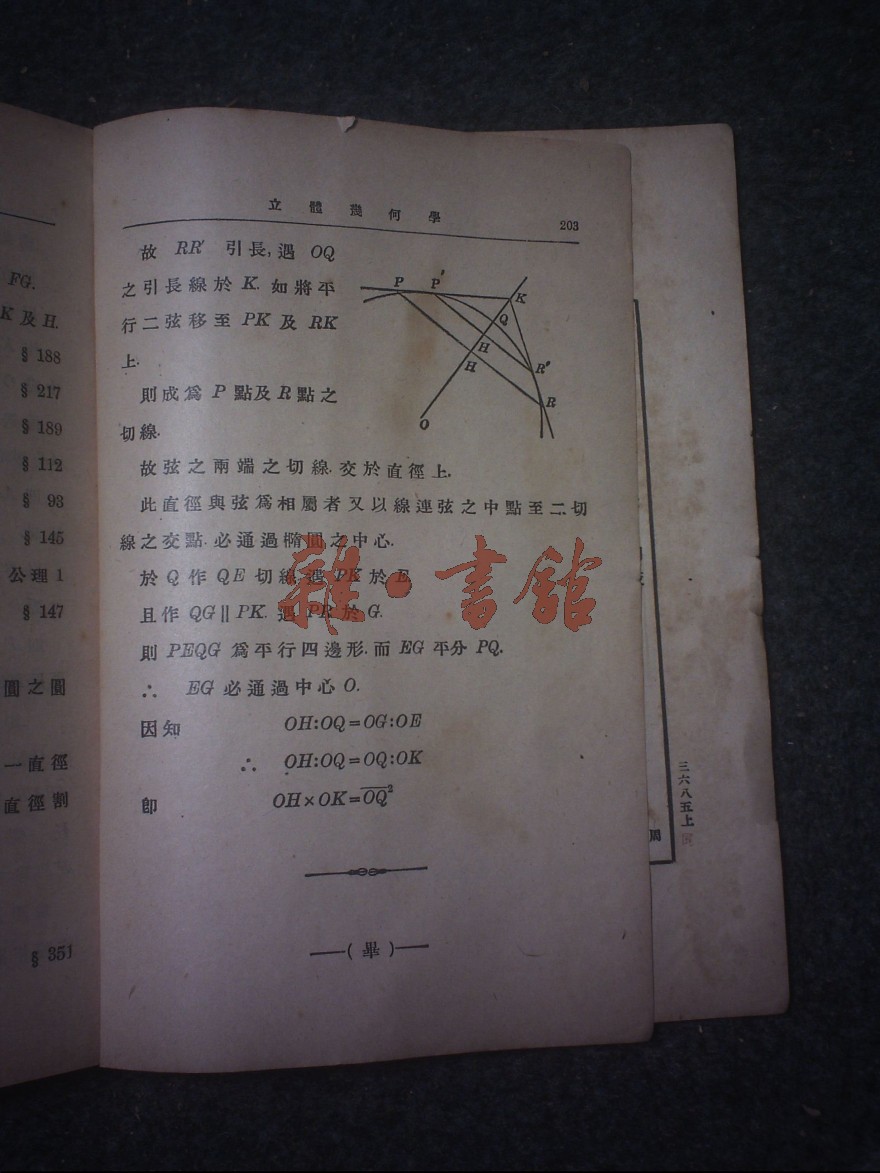 FG.
K 及 H.
§ 188
§ 217
§ 189
§ 112
§ 93
§ 145
公理 1
§ 147
圓之圓
一直徑
直徑割
§ 351
立體幾何學 203
故 RR′ 引長, 遇 OQ
之引長線於 K. 如將平
行二弦移至 PK 及 RK
上.
則成爲 P 點及 R 點之
切線.
P P′ K
Q
H R′
H
R
O
故弦之兩端之切線. 交於直徑上.
此直徑與弦爲相屬者又以線連弦之中點至二切
線之交點. 必通過橢圓之中心.
於 Q 作 QE 切線. 遇 PK 於 E.
且作 QG ∥ PK. 遇 PR 於 G.
則 PEQG 爲平行四邊形. 而 EG 平分 PQ.
∴ EG 必通過中心 O.
因知 OH:OQ=OG:OE
∴ OH:OQ=OQ:OK
卽 OH×OK=OQ²
(畢)
三六八五上
雜·書館